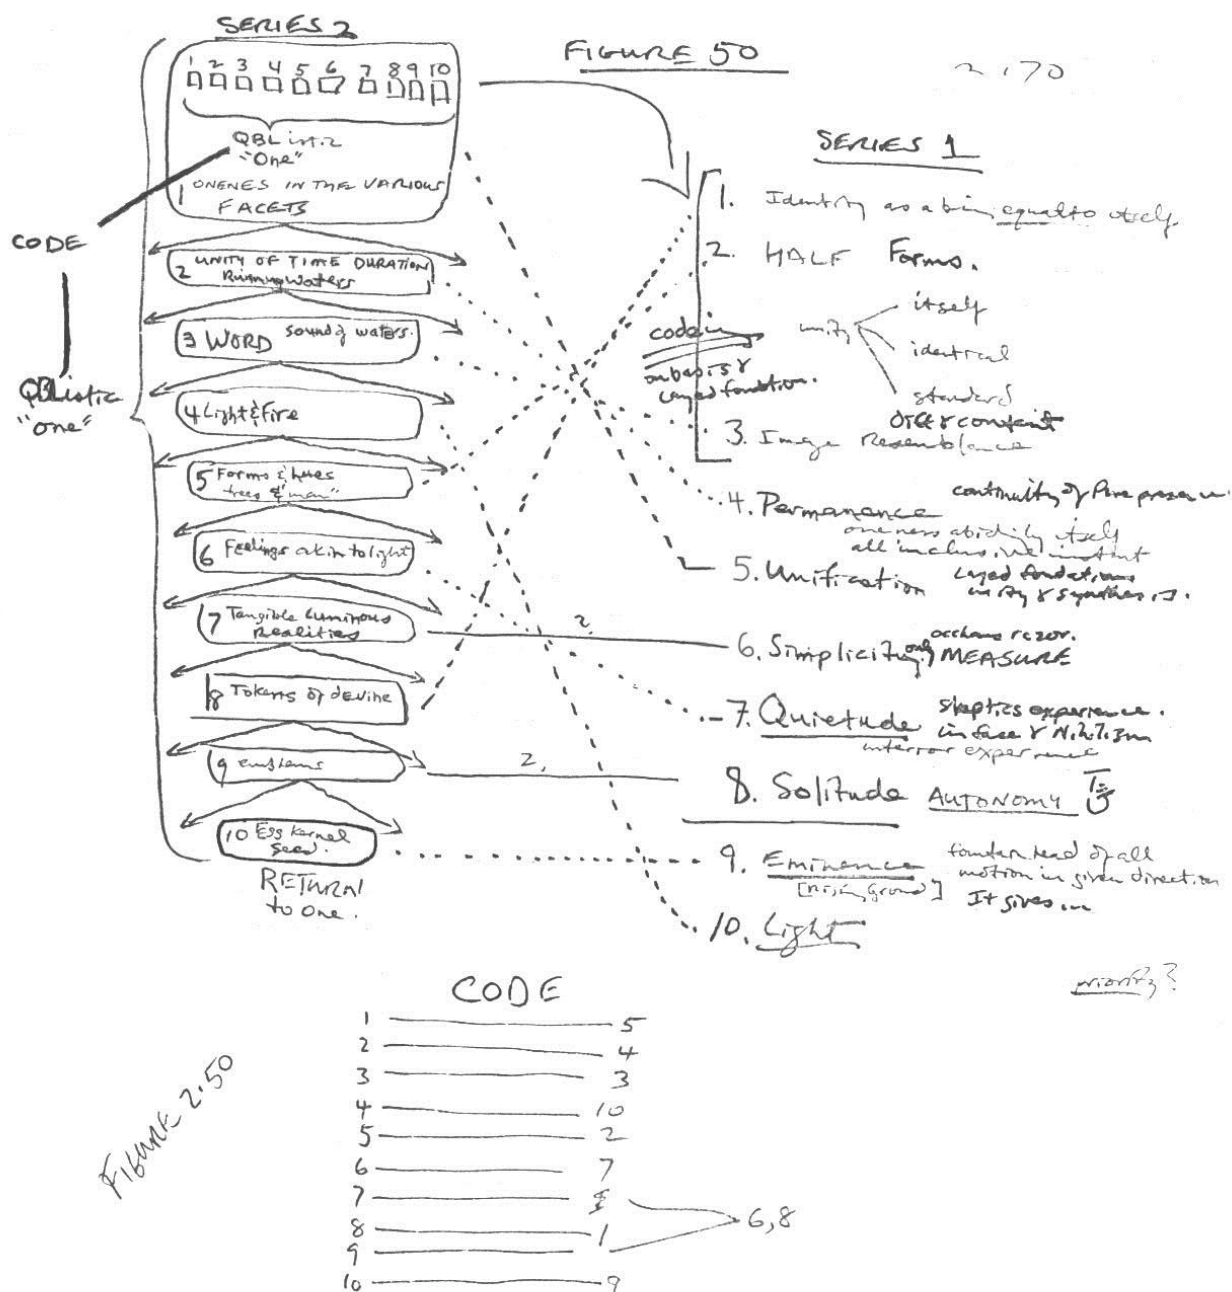 SERIES 2
FIGURE 50
2.170
1 2 3 4 5 6 7 8 9 10
"One"
1 ONENES IN THE VARIOUS
FACETS
CODE
QBListic
"one"
2 UNITY OF TIME DURATION
Running Waters
3 WORD sound of waters.
4 Light & Fire
5 Forms & hues
trees & "man"
6 Feelings akin to light
7 Tangible Luminous
Realities
8 Tokens of devine
9 emblems
10 Egg kernel
Seed.
RETURN
to one.
2,
2,
SERIES 1
1. Identity as a being equal to itself.
2. HALF Forms.
code in
on basis of
layed fondtion.
unity
itself
identical
standard
3. Image Resemblance
4. Permanence continuity of Pure presence
oneness abidingly itself
all inclusive instant
5. Unification Layed fondations
unity & synthesis.
6. Simplicity only occhams rezor.
MEASURE
7. Quietude skeptics experience.
in face of
interior experience
8. Solitude AUTONOMY
9. Eminence fountain head of all
motion in given direction
[rising ground] It gives
10. Light
priority?
CODE
1 5
2 4
3 3
4 10
5 2
6 7
7
8 1
9
10 9
6,8
FIGURE 2.50